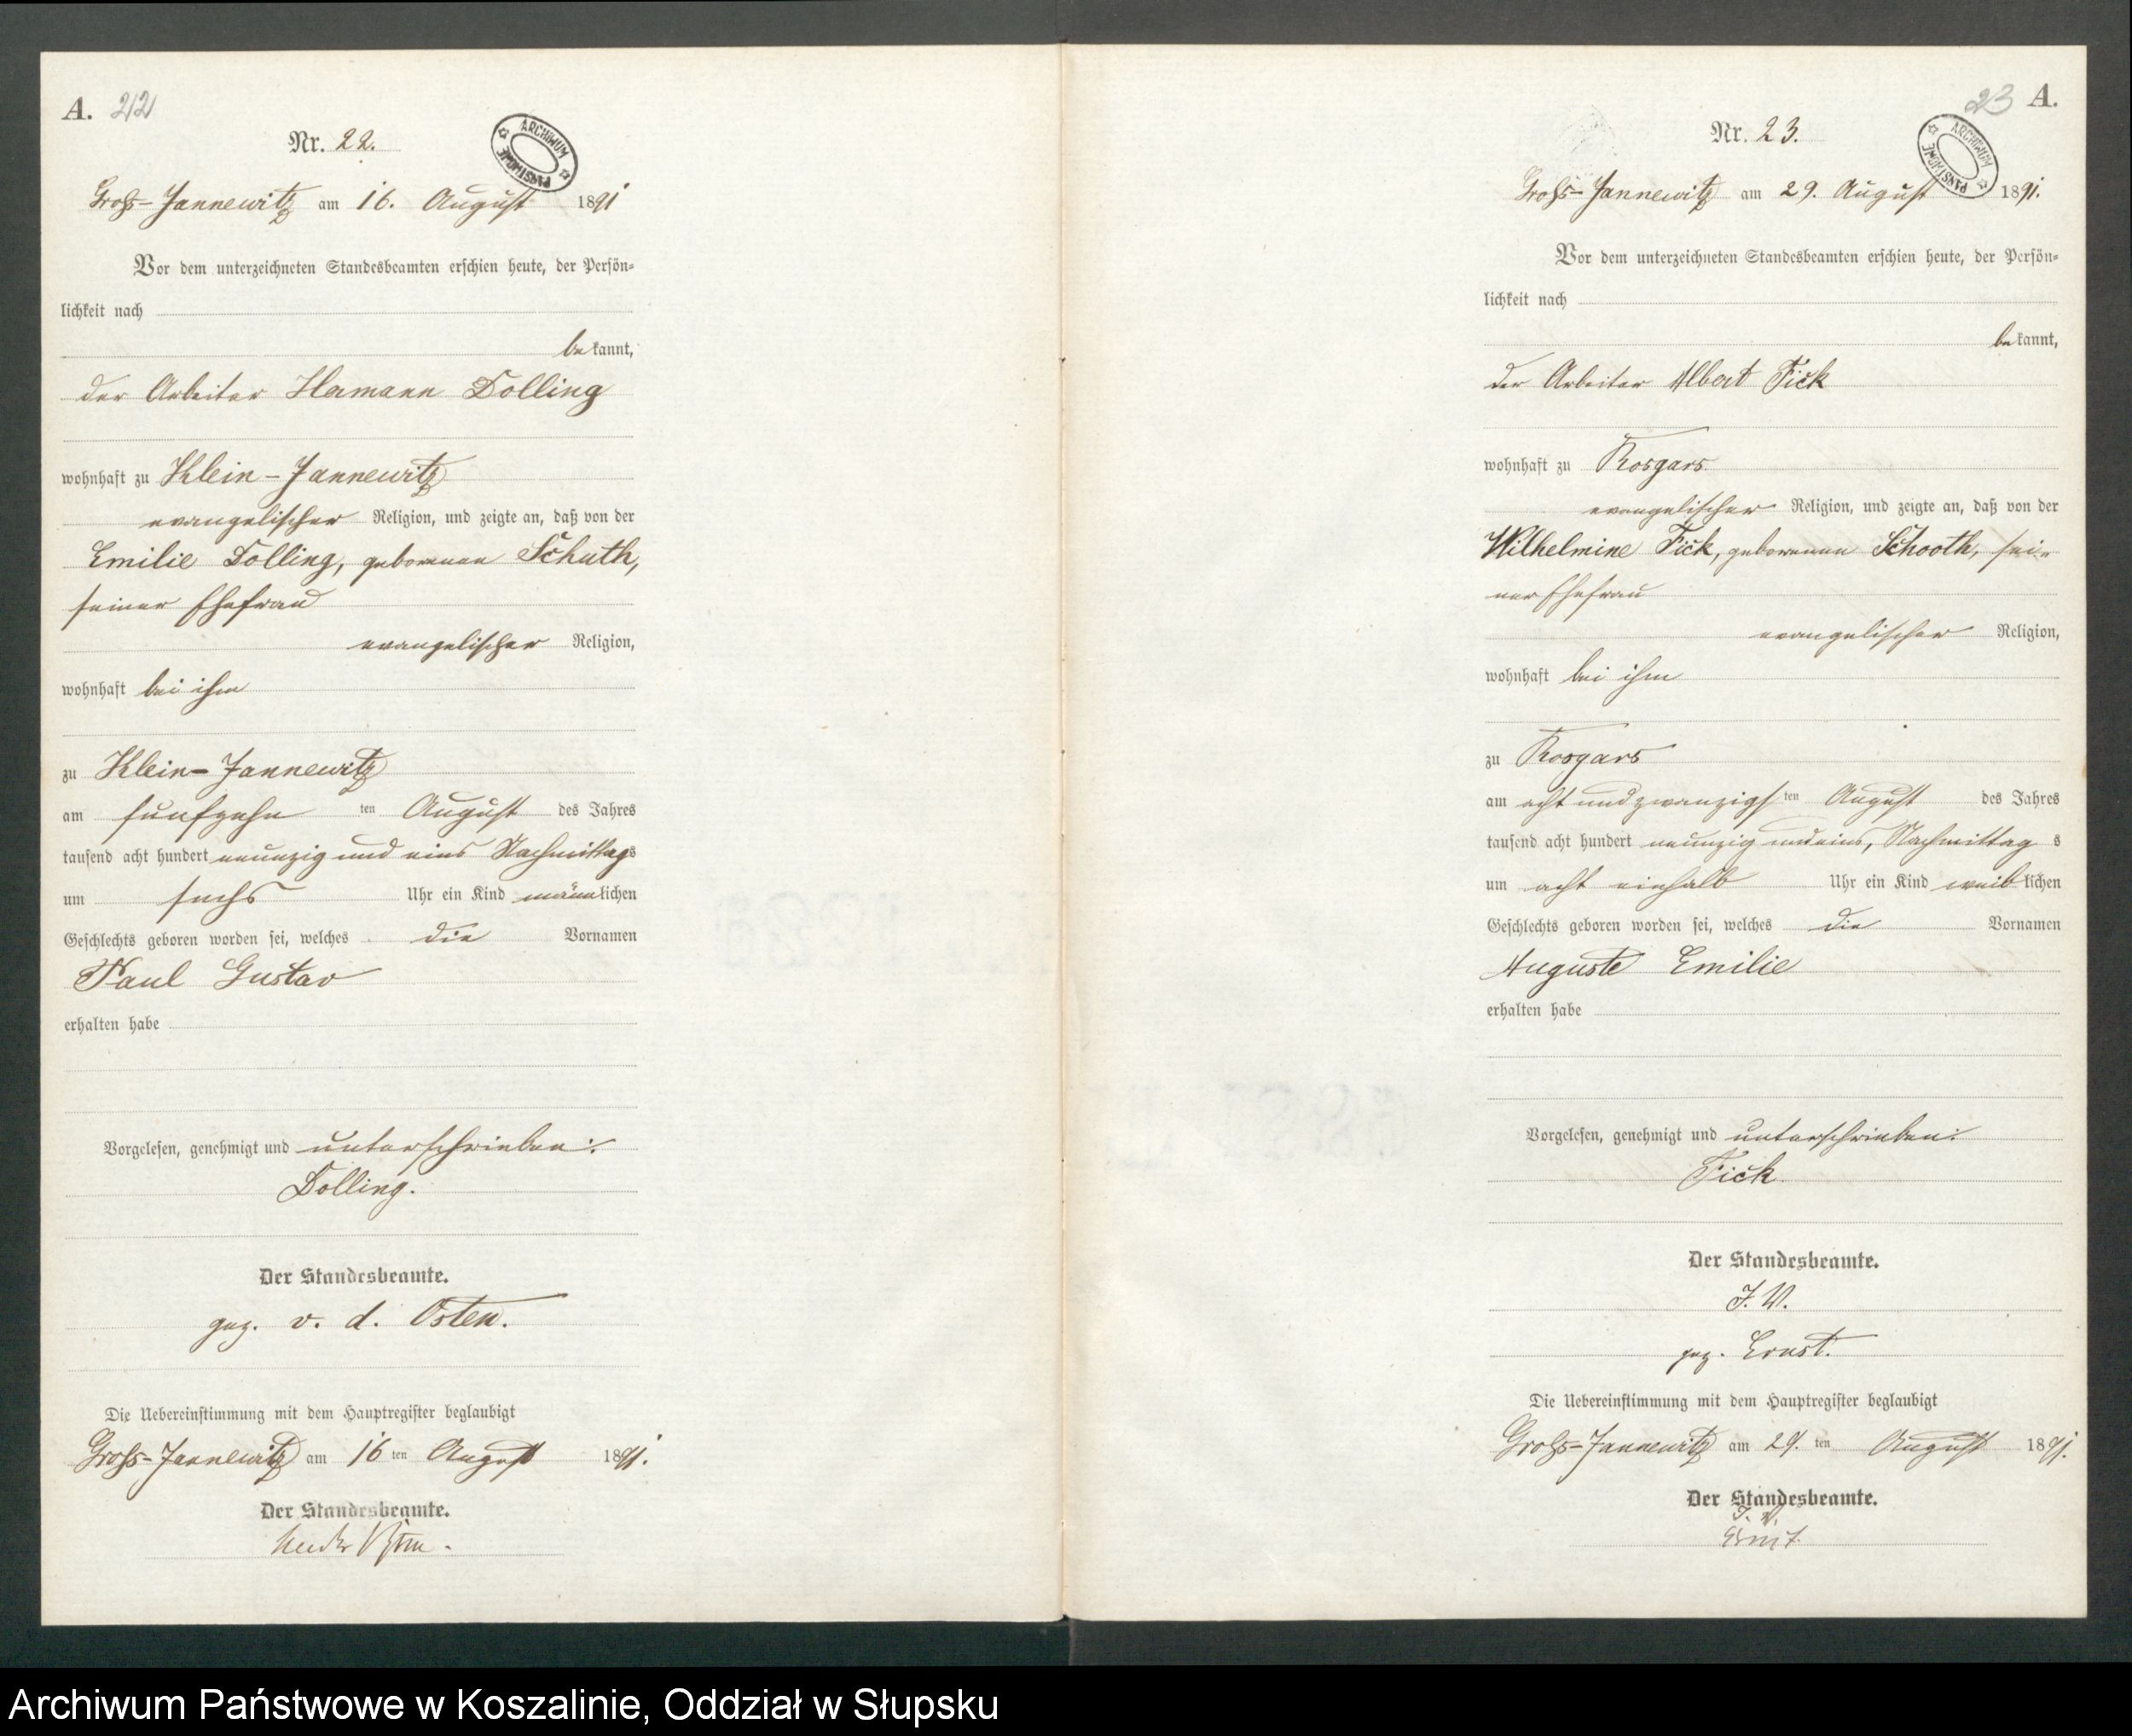 A. 22
Nr. 22.
ARCHIWUM PAŃSTWOWE
Groß-Jannewitz am 16. August 1891
Vor dem unterzeichneten Standesbeamten erschien heute, der Persön-
lichkeit nach
bekannt,
der Arbeiter Hermann Dolling
wohnhaft zu Klein-Jannewitz
evangelischer Religion, und zeigte an, daß von der
Emilie Dolling, geborenen Schuth,
seiner Ehefrau
evangelischer Religion,
wohnhaft bei ihm
zu Klein-Jannewitz
am fünfzehn ten August des Jahres
tausend acht hundert neunzig und eins Nachmittags
um sechs Uhr ein Kind männlichen
Geschlechts geboren worden sei, welches die Vornamen
Paul Gustav
erhalten habe
Vorgelesen, genehmigt und unterschrieben:
Dolling.
Der Standesbeamte.
gez. v. d. Osten.
Die Uebereinstimmung mit dem Hauptregister beglaubigt
Groß-Jannewitz am 16 ten August 1891.
Der Standesbeamte.
23 A.
Nr. 23.
ARCHIWUM PAŃSTWOWE
Groß-Jannewitz am 29. August 1891.
Vor dem unterzeichneten Standesbeamten erschien heute, der Persön-
lichkeit nach
bekannt,
der Arbeiter Albert Fick
wohnhaft zu Rosgars
evangelischer Religion, und zeigte an, daß von der
Wilhelmine Fick, geborenen Schooth, sei-
ner Ehefrau
evangelischer Religion,
wohnhaft bei ihm
zu Rosgars
am acht und zwanzigsten August des Jahres
tausend acht hundert neunzig und eins, Nachmittags
um acht einhalb Uhr ein Kind weiblichen
Geschlechts geboren worden sei, welches die Vornamen
Auguste Emilie
erhalten habe
Vorgelesen, genehmigt und unterschrieben:
Fick.
Der Standesbeamte.
J. V.
gez. Ernst.
Die Uebereinstimmung mit dem Hauptregister beglaubigt
Groß-Jannewitz am 29. ten August 1891.
Der Standesbeamte.
J. V.
Ernst.
Archiwum Państwowe w Koszalinie, Oddział w Słupsku